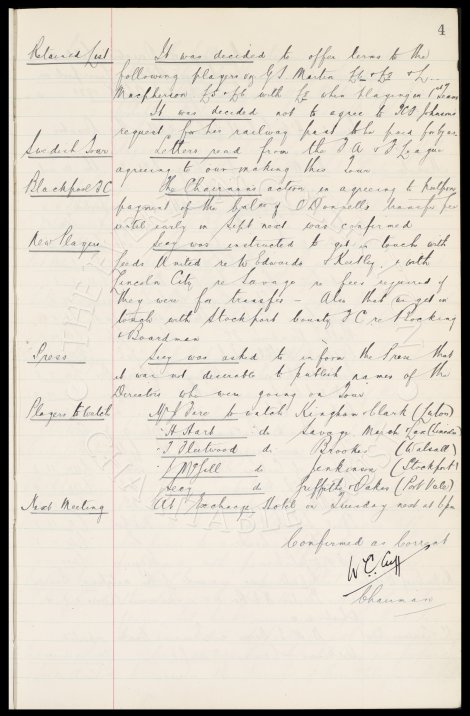 4
Retained List It was decided to offer terms to the
following players viz G S Martin
Macpherson £5 & £6 with when playing in 1st Team
It was decided not to agree to Johnsons
request for her railway fare to be paid
Swedish Tour Letters read from the F A & F League
agreeing to our making this Tour
Blackpool F C The Chairmans action in agreeing to
payment of the balce of O'Donnells transfer fee
until early in Sept next was confirmed
New Players Secy was instructed to get in touch with
Leeds United re W Edwards & Keetley, & with
Lincoln City re Savage re fees required if
they were for transfer – Also that we get in
touch with Stockport County F C re
& Boardman
Press Secy was asked to inform the Press that
it was not desirable to publish names of the
Directors who were going on Tour
Players to Watch Mr to watch & Clark (Luton)
" H Hart do Savage, March & Cox (Lincoln
" Fleetwood do Brooker (Walsall)
" do Jenkinson (Stockport)
Secy do Griffiths & Oakes (Port Vale)
Next Meeting At Exchange Hotel on Tuesday next at 6pm
Confirmed as Correct
W C Cuff
Chairman